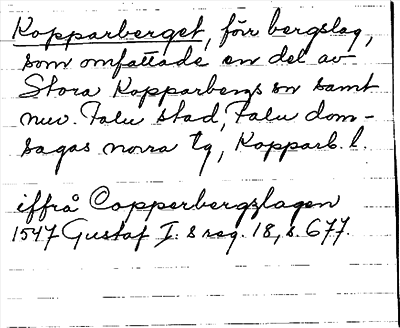 Kopparberget, förr bergslag,
som omfattade en del av
Stora Kopparbergs sn samt
nuv. Falu stad, Falu dom-
sagas norra tg, Kopparb. l.
iffrå Copperbergzlagen
1547 Gustaf I:s reg. 18, s. 677.